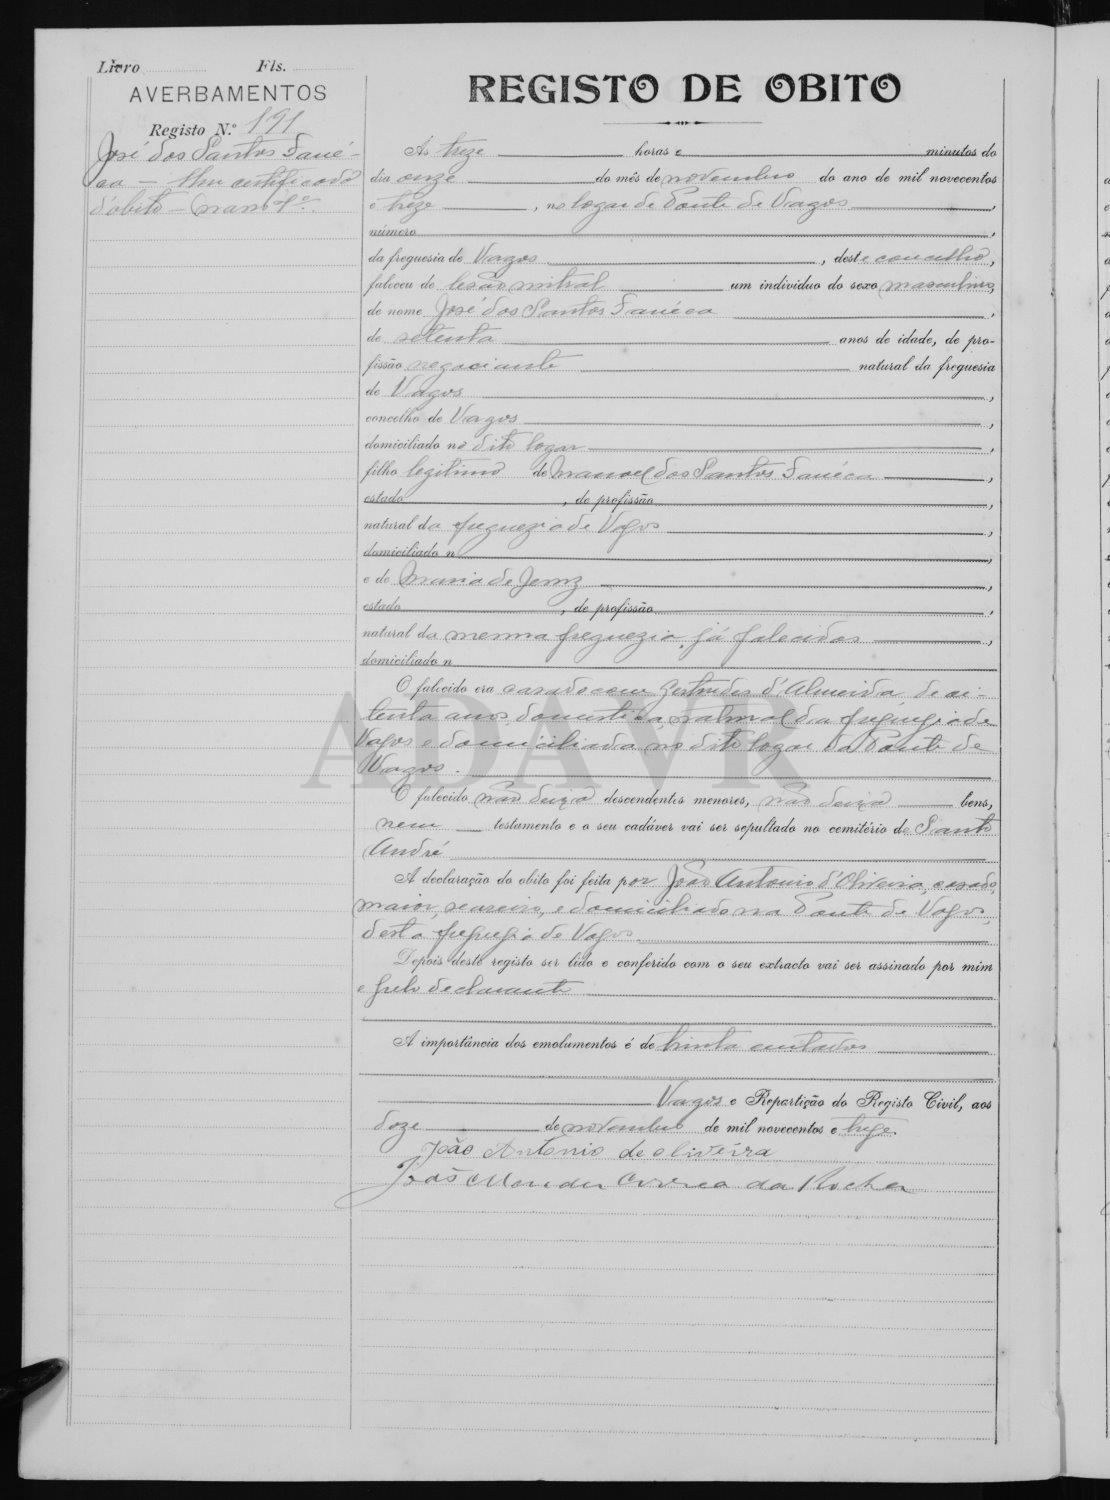 Livro Fls.
AVERBAMENTOS
Registo N.º 191
José dos Santos Fané-
ca — certificado
d'obito — maço 1º.
REGISTO DE OBITO
As treze horas e minutos do
dia onze do mês de novembro do ano de mil novecentos
e treze, no logar de Ponte de Vagos,
número,
da freguesia de Vagos, deste concelho,
faleceu de lesão mitral um individuo do sexo masculino,
de nome José dos Santos Fanéca,
de setenta anos de idade, de pro-
fissão negociante natural da freguesia
de Vagos,
concelho de Vagos,
domiciliado no dito logar,
filho legitimo de Manoel dos Santos Fanéca,
estado, de profissão,
natural da freguezia de Vagos,
domiciliado n,
e de Maria de Jesus,
estado, de profissão,
natural da mesma freguezia, já falecidos,
domiciliado n
O falecido era casado com Gertrudes d'Almeida, de
tenta anos, domestica, natural da freguezia de
Vagos e domiciliada no dito logar da Ponte de
Vagos.
O falecido não deixa descendentes menores, não deixa bens,
nem testamento e o seu cadáver vai ser sepultado no cemitério de Santo
André
A declaração do obito foi feita por João Antonio d'Oliveira, casado,
maior, seareiro, e domiciliado na Ponte de Vagos,
desta freguezia de Vagos
Depois deste registo ser lido e conferido com o seu extracto vai ser assinado por mim
e pelo declarante
A importância dos emolumentos é de trinta centavos
Vagos e Repartição do Registo Civil, aos
doze de novembro de mil novecentos e treze.
João Antonio de oliveira
João Mendes Correa da Rocha
ADAVR